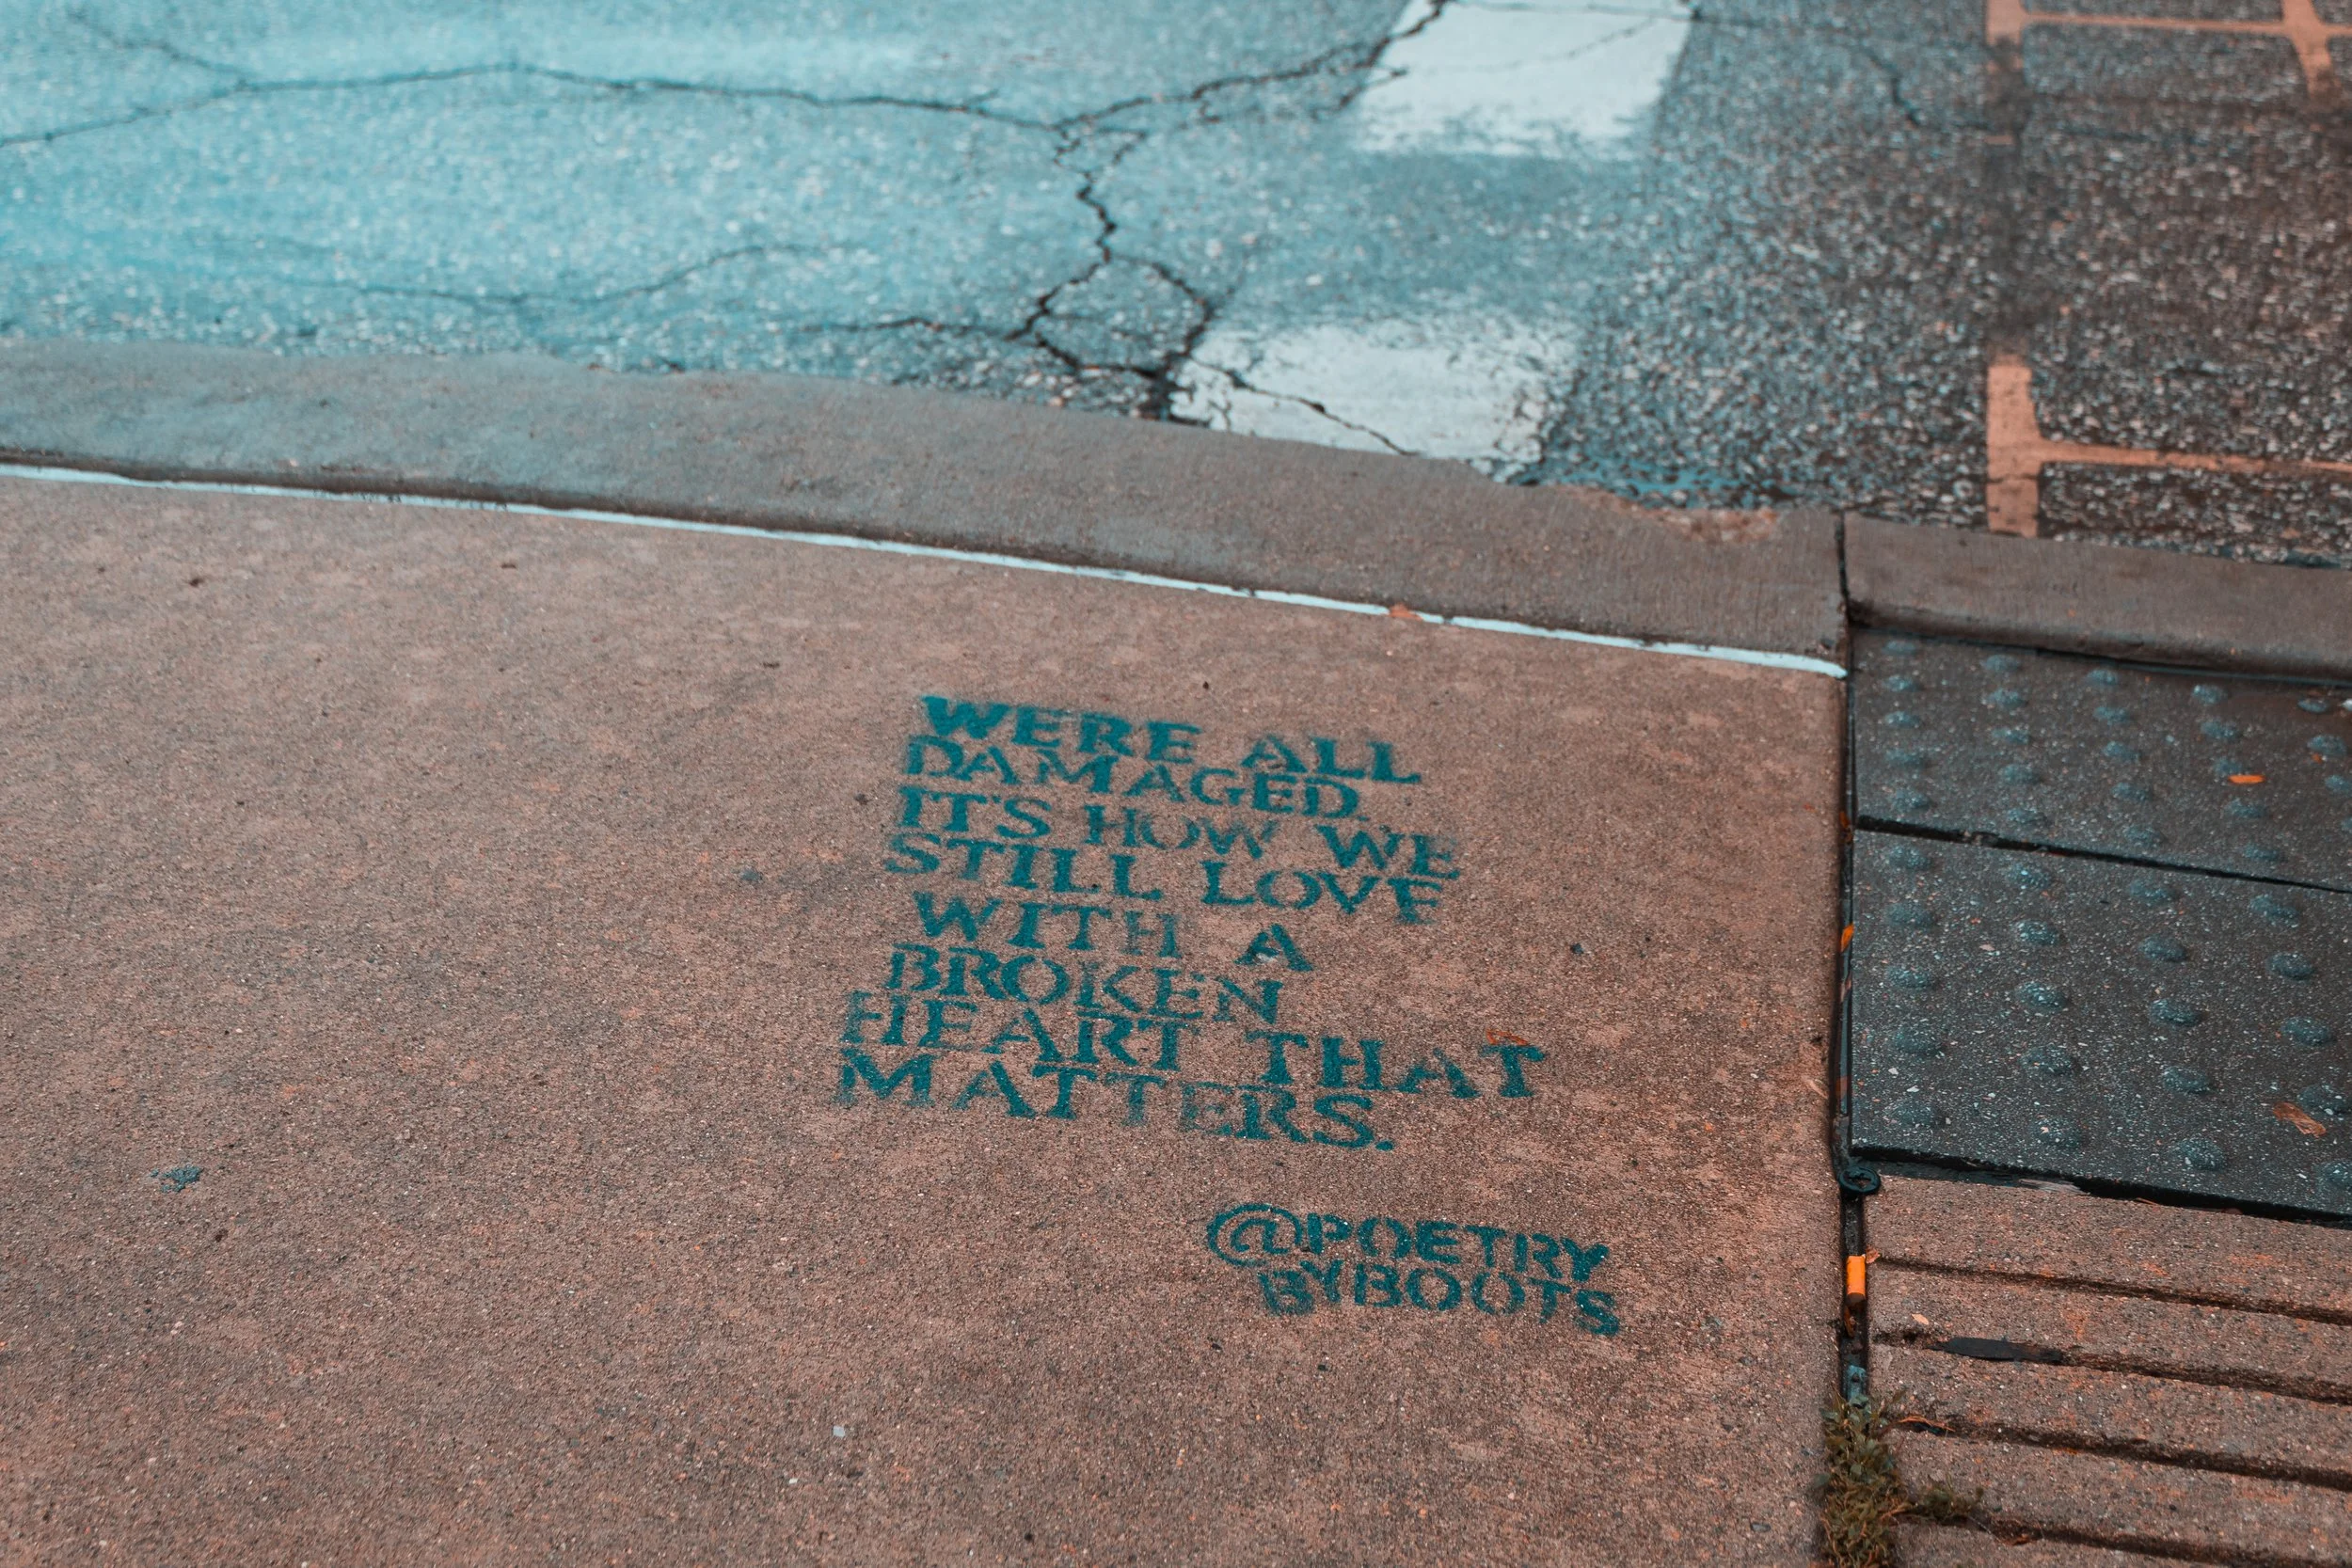 WERE ALL
DAMAGED.
IT'S HOW WE
STILL LOVE
WITH A
BROKEN
HEART THAT
MATTERS.
@POETRY
BYBOOTS